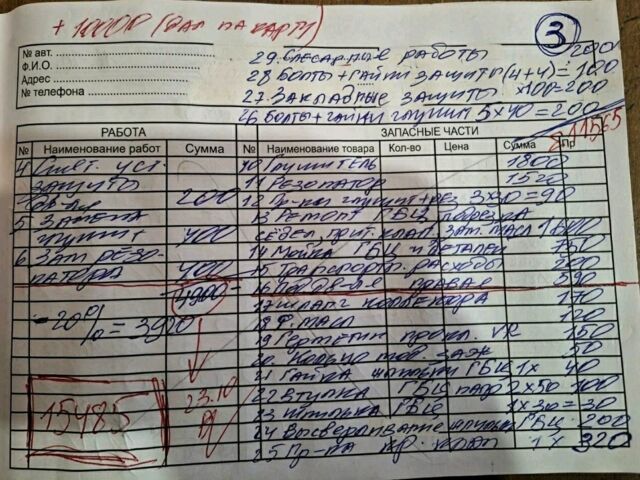 + 1000р (дал на карту)
3
№ авт.
Ф.И.О.
Адрес
№ телефона
29. Слесарные работы 200
28 Болты + гайки защиты (4+4) = 100
27. Закладные защиты ×100=200
26 Болты + гайки глушит 5×40=200
11565
РАБОТА
ЗАПАСНЫЕ ЧАСТИ
№ Наименование работ Сумма
№ Наименование товара Кол-во Цена Сумма Пр
4 уст. защиты 200
5 Замена глушит 400
6 Зам резонатора 400
4900
-20% = 3920
23.10
15485
10 Глушитель 1800
11 Резонатор 1520
12 Пр-ки глушит + рез 3×30=90
13 Ремонт ГБЦ
седел, прит. клап зам. масл 1600
14 Мойка ГБЦ и деталей 750
15 Транспортн. расходы 200
16 правая 590
17 Шланг коллектора 170
18 Ф. масл 120
19 Герметик прокл. VR 150
20 Кольцо 50
21 Гайка шпильки ГБЦ 1× 40
22 Втулка ГБЦ 2×50 100
23 Шпилька ГБЦ 1×30=30
24 Высверливание шпильки ГБЦ 200
25 Пр-ка кр. клап 1× 320